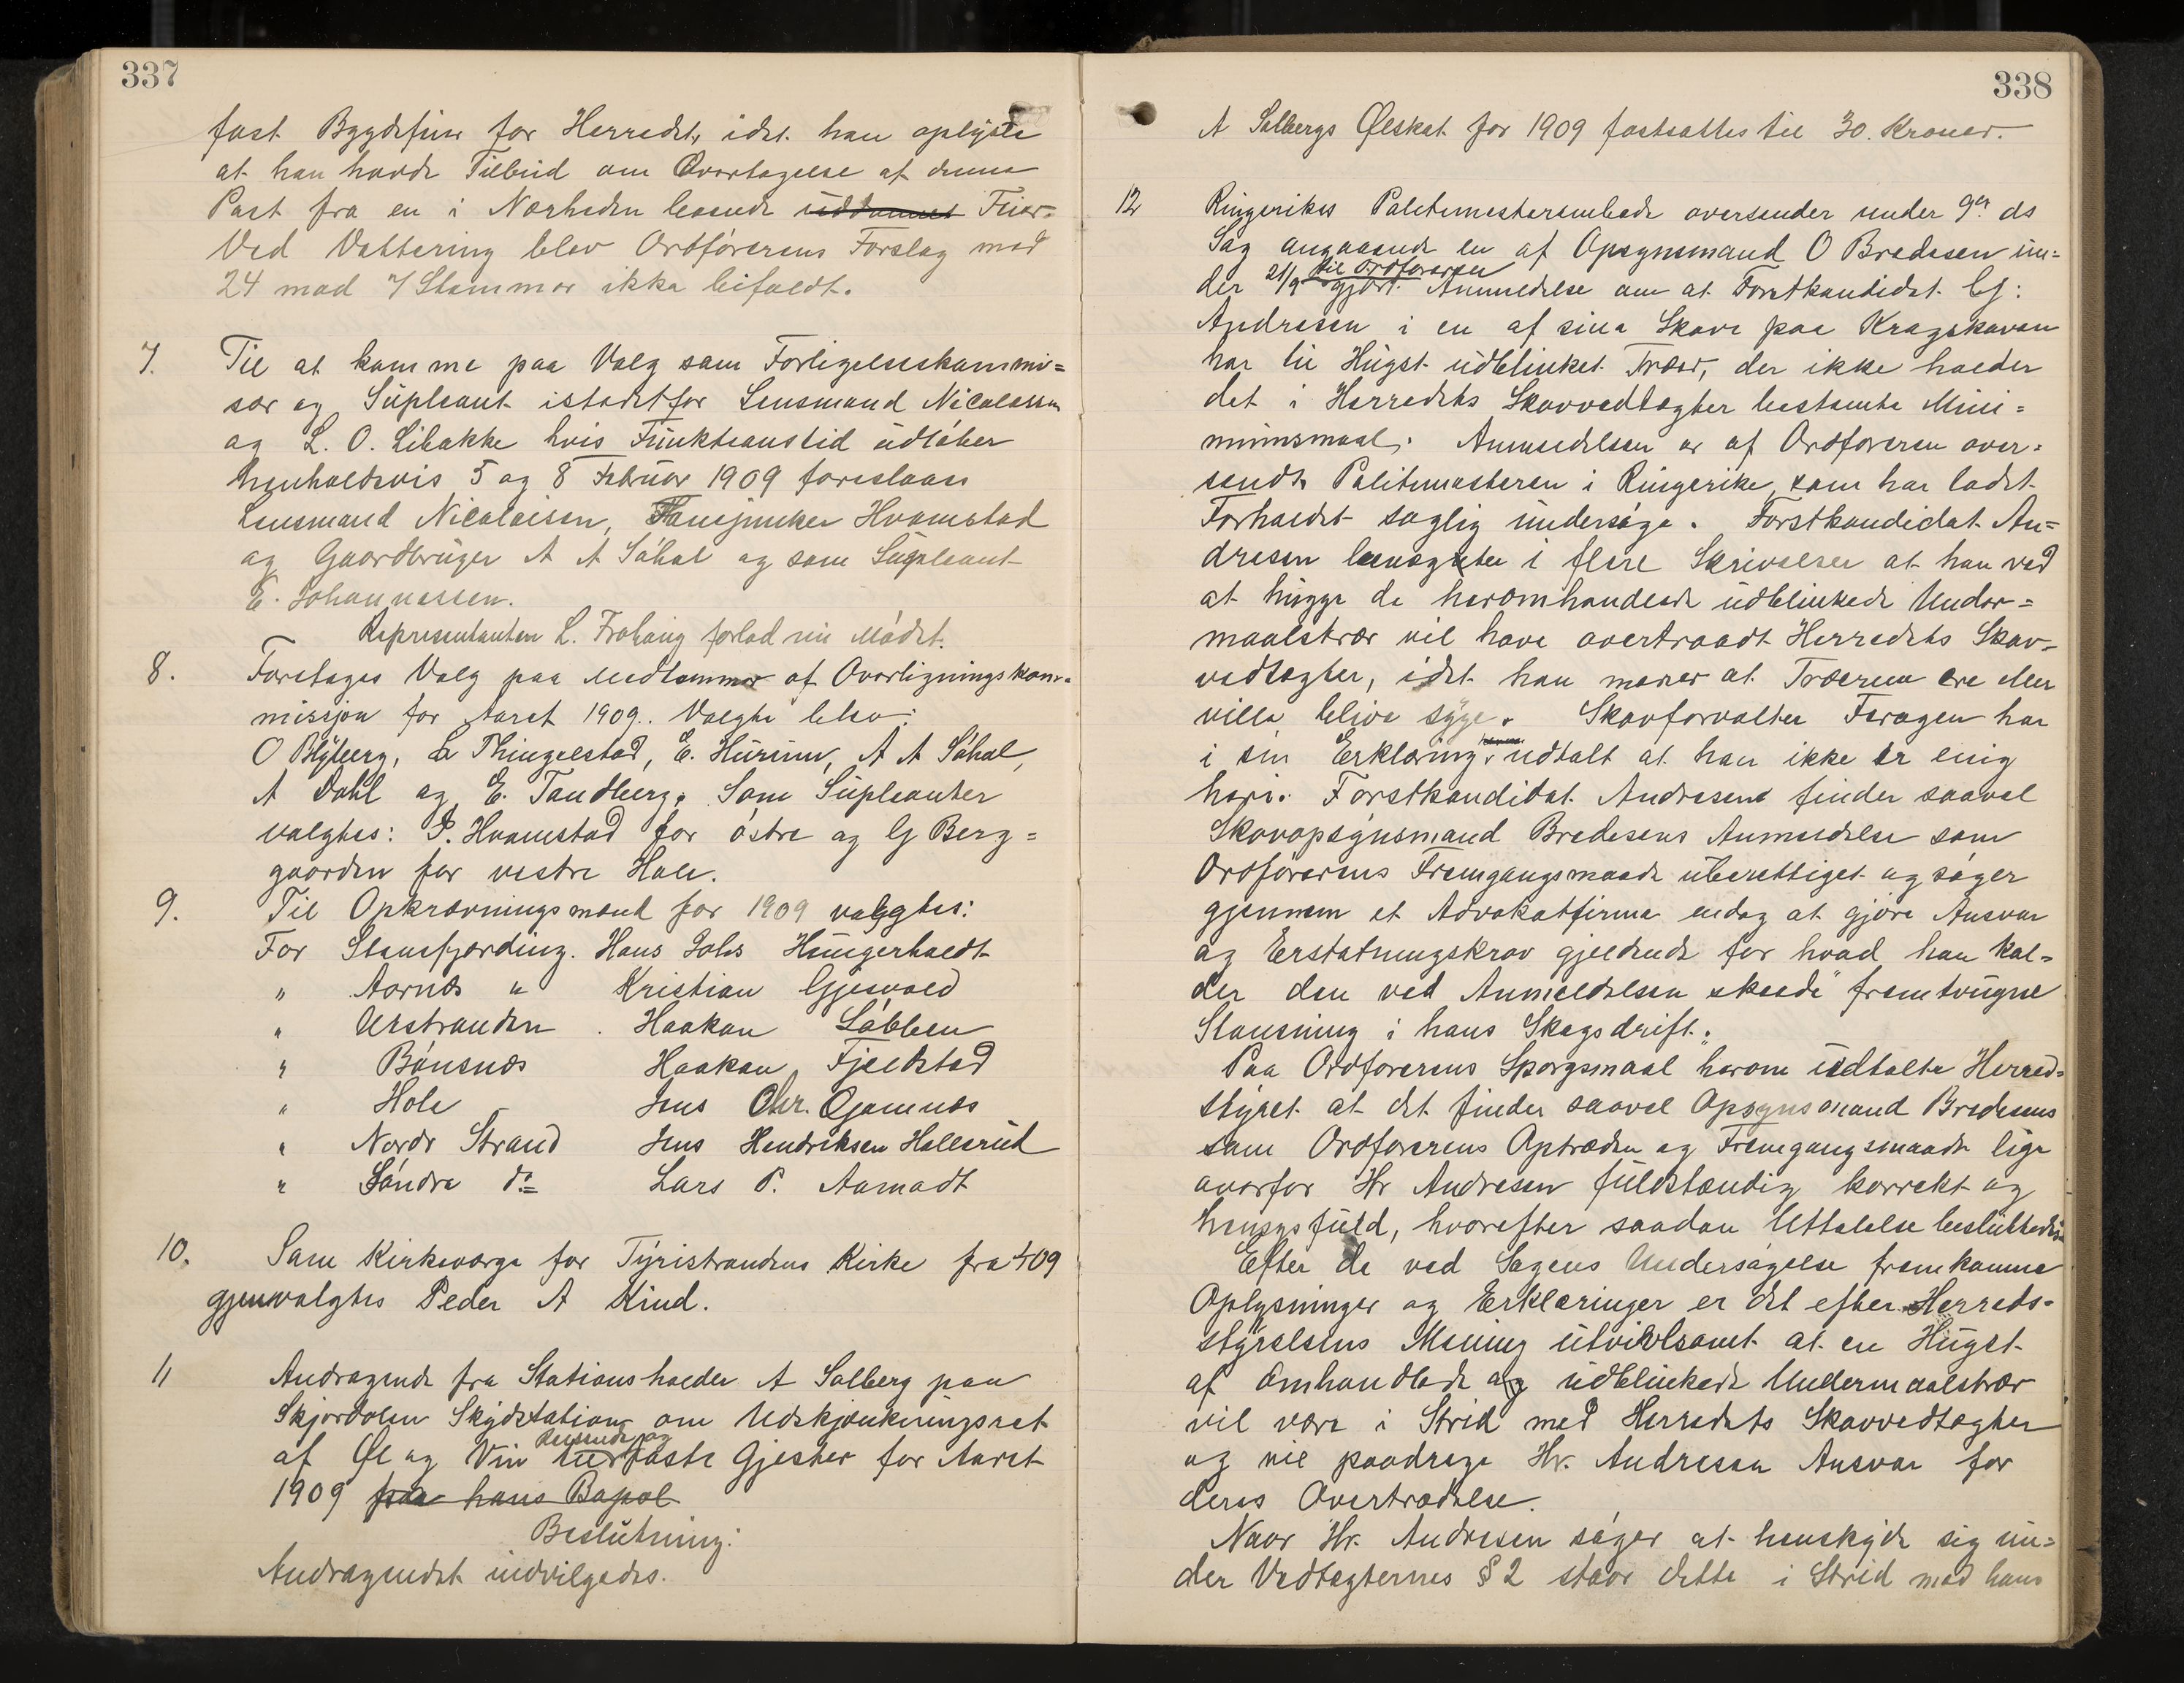 337
fast Bygdefeier for Herredet, idet han oplyste
at han havde Tilbud om Overtagelse af denne
Post fra en i Nærheden boende uddannet Feier.
Ved Vottering blev Ordførerens Forslag mod
24 mod 7 Stemmer ikke bifaldt.
7. Til at komme paa Valg som Forligelseskommi=
sær og Supleant istedetfor Lensmand Nicolaisen
og L. O. Libakke hvis Funktionstid udløber
henholdsvis 5 og 8 Februar 1909 foreslaaes
Lensmand Nicolaisen, Fanejunker Hvamstad
og Gaardbruger A A Søhol og som Supleant
E. Johannessen.
Representanten L. Frøhaug forlod nu Mødet.
8. Foretages Valg paa Medlemmer af Overligningskom=
missjon for Aaret 1909. Valgte blev:
O Blyberg, L Thingelstad, E. Hurum, A A Søhol,
A Dahl og E. Tandberg. Som Supleanter
valgtes: P. Hvamstad for østre og G Berg=
gaarden for vestre Hole.
9. Til Opkrævningsmænd for 1909 valgtes:
For Stensfjerding. Hans Johs Hungerholdt
" Aarnæs " Kristian Gjesvold
" Utstranden . Haakon Løbben
" Bønsnæs Haakon Fjeldstad
" Hole Jens Chr. Gomnæs
" Nordr Strand Jens Hendriksen Hollerud
" Søndre do Lars P. Aamodt
10. Som Kirkeværge for Tyristrandens Kirke fra 1/1 09
gjenvalgtes Peder A Rind.
11 Andragende fra Stationsholder A Solberg paa
Skjærdalen Skydsstation om Udskjænkningsret
Reisende og
af Øl og Vin til faste Gjester for Aaret
1909 paa hans Bopæl
Beslutning:
Andragendet indvilgedes.
338
A Solbergs Ølskat for 1909 fastsattes til 30 Kroner.
12 Ringerikes Politimesterembede oversender under 9de ds
Sag angaaende en af Opsynsmand O Bredesen un=
til Ordføreren
der 21/9 gjort Anmeldelse om at Forstkandidat Cf:
Andresen i en af sine Skove paa Krogskoven
har til Hugst udblinket Trær, der ikke holder
det i Herredets Skovvedtægter bestemte Mini=
mumsmaal. Anmeldelsen er af Ordføreren over=
sendt Politimesteren i Ringerike, som har ladet
Forholdet saglig undersøge. Forstkandidat An=
dresen benegter i flere Skrivelser at han ved
at hugge de heromhandlede udblinkede Under=
maalstrær vil have overtraadt Herredets Skov=
vedtægter, idet han mener at Trærne ere eller
ville blive syge. Skovforvalter Foragen har
i sin Erklæring udtalt at han ikke er enig
heri. Forstkandidat Andresen finder saavel
Skovopsynsmand Bredesens Anmeldelse som
Ordførerens Fremgangsmaade uberettiget og søger
gjennem et Advokatfirma endog at gjøre Ansvar
og Erstatningskrav gjeldende for hvad han kal=
der den ved Anmeldelsen skeede "fremtvugne
Stansning i hans Skogsdrift".
Paa Ordførerens Spørgsmaal herom udtalte Herred=
styret at det finder saavel Opsynsmand Bredesens
som Ordførerens Optræden og Fremgangsmaade lige
overfor Hr Andresen fuldstændig korrekt og
hensynsfuld, hvorefter saadan Uttalelse besluttedes.
Efter de ved Sagens Undersøgelse fremkomne
Oplysninger og Erklæringer er det efter Herreds-
styrelsens Mening utvivlsomt at en Hugst
af omhandlede og udblinkede Undermaalstrær
vil være i Strid med Herredets Skovvedtægter
og vil paadrage Hr. Andresen Ansvar for
deres Overtrædelse.
Naar Hr. Andresen søger at henskyde sig un=
der Vedtægternes § 2 staar dette i Strid med hans